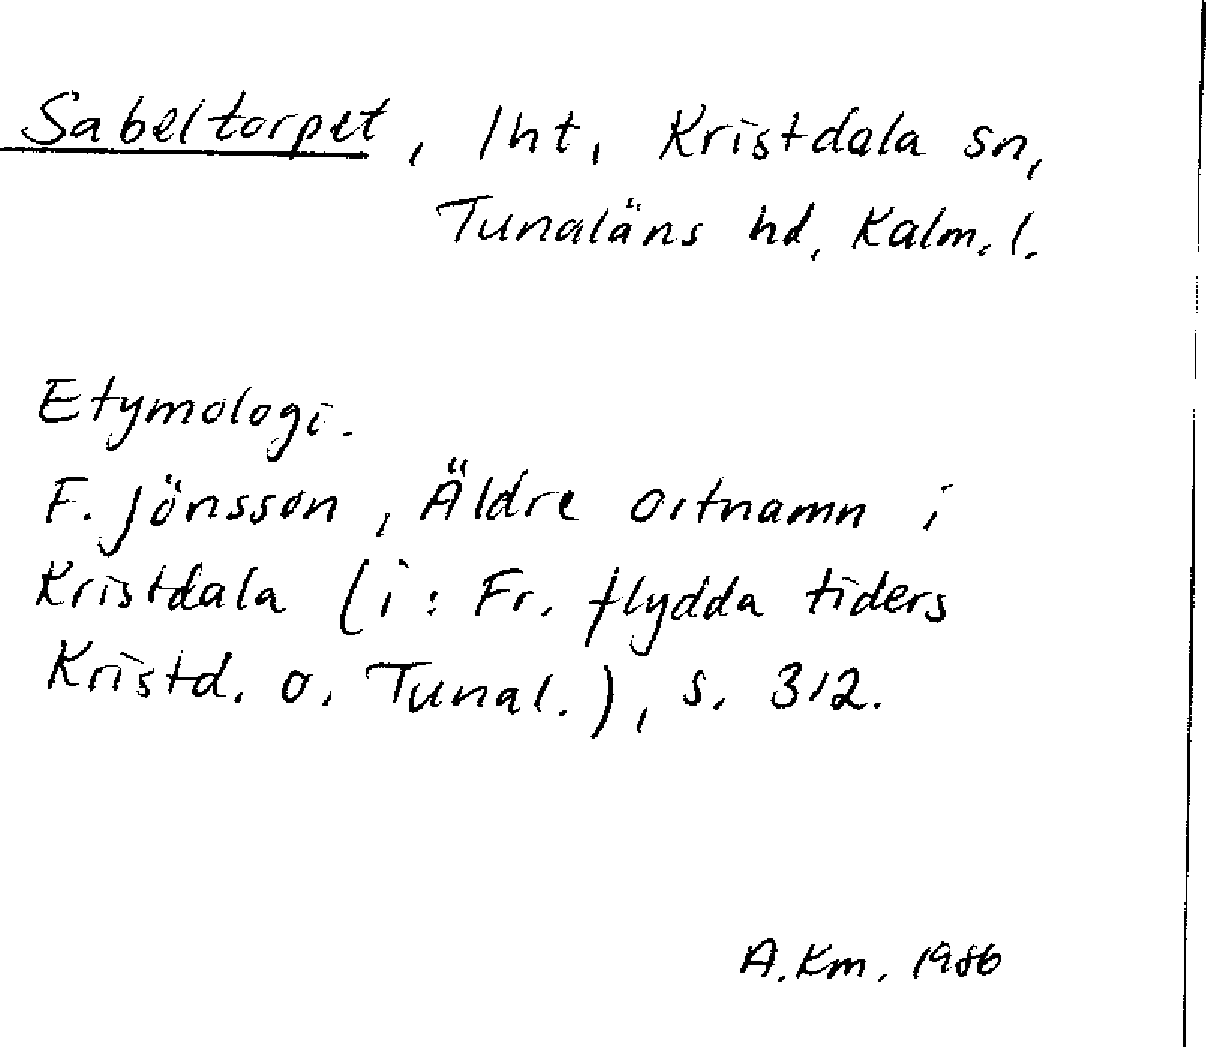 Sabeltorpet, lht, Kristdala sn,
Tunaläns hd, Kalm. l.
Etymologi.
F. Jönsson, Äldre ortnamn i
Kristdala (i: Fr. flydda tiders
Kristd. o. Tunal.), s. 312.
A. Km. 1986